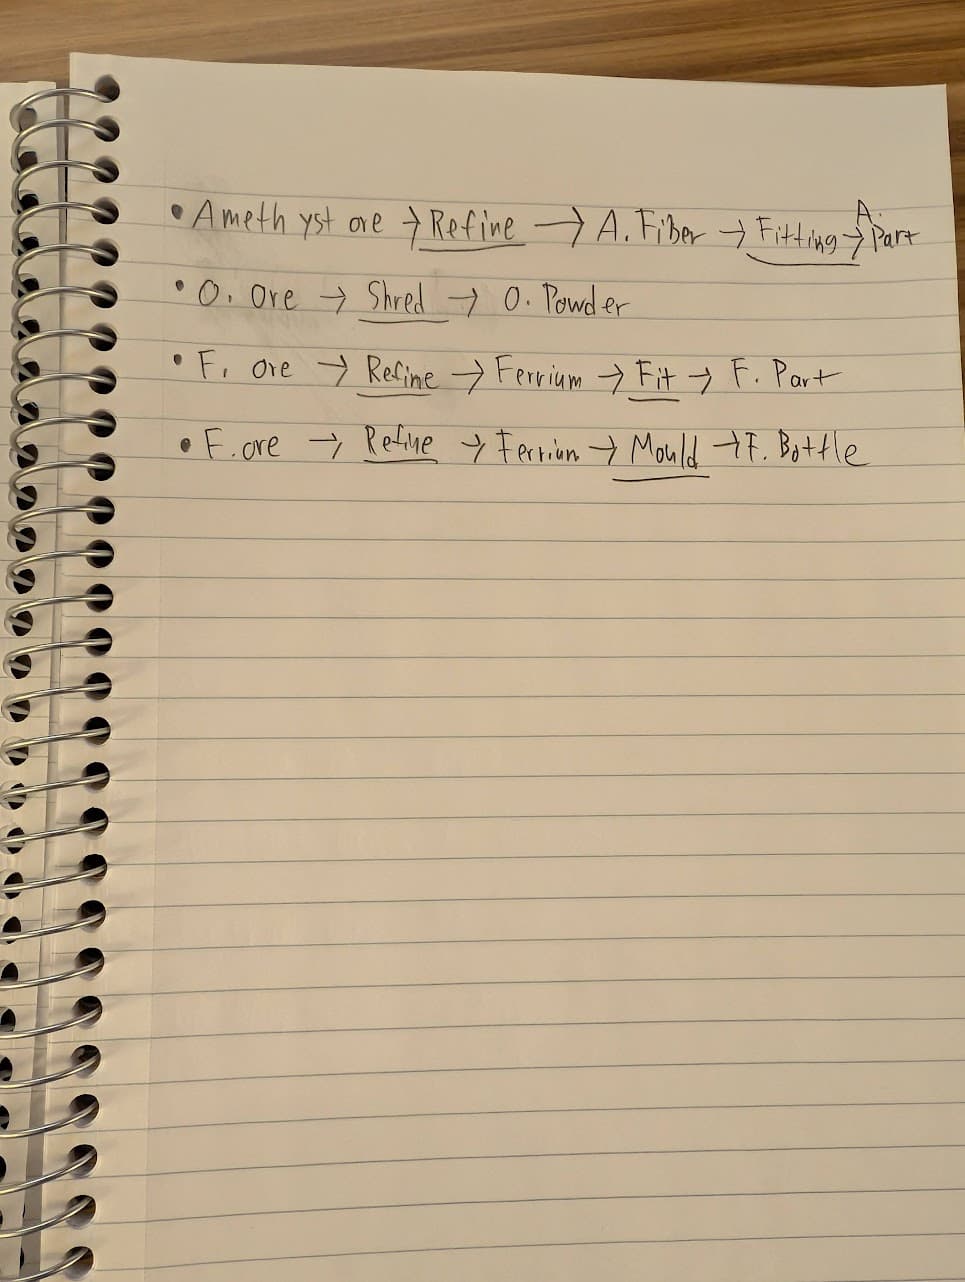 • Amethyst ore → Refine → A. Fiber → Fitting → A. Part
• O. Ore → Shred → O. Powder
• F. ore → Refine → Ferrium → Fit → F. Part
• F. ore → Refine → Ferrium → Mould → F. Bottle